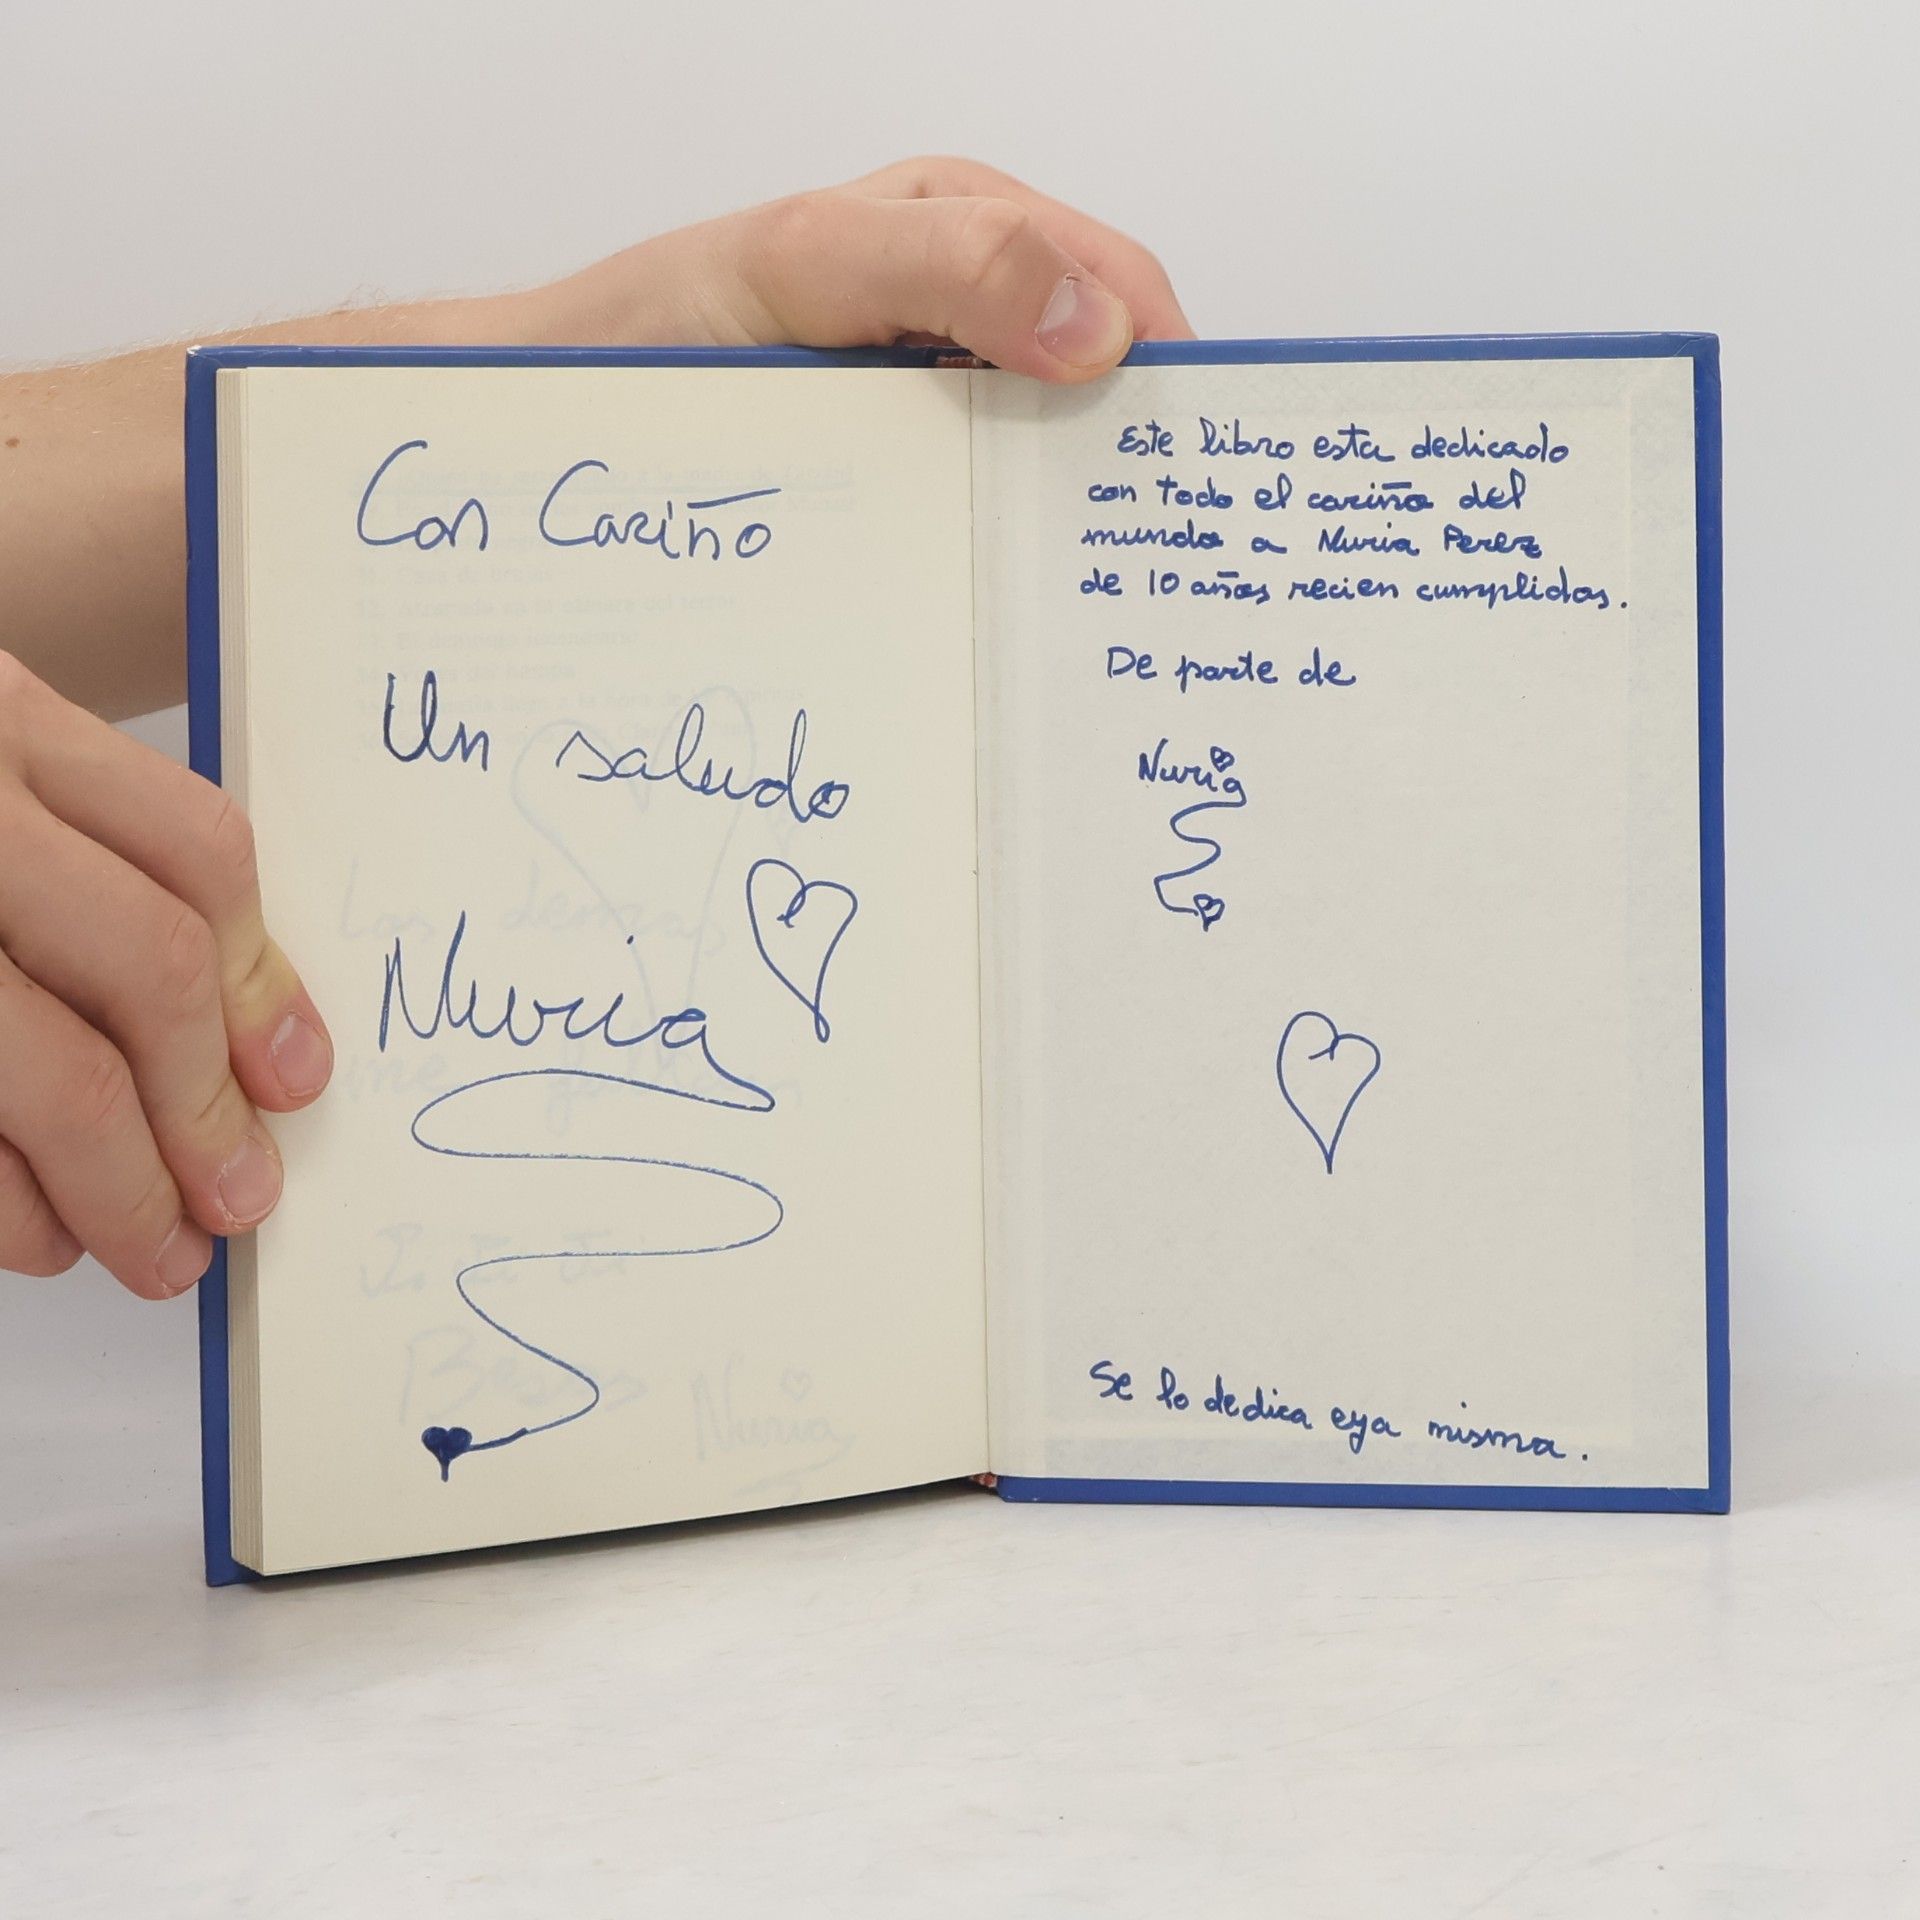 Con Cariño
Un saludo
Nuria
Este libro esta dedicado
con todo el cariño del
mundo a Nuria Perez
de 10 años recien cumplidos.
De parte de
Nuria
Se lo dedica eya misma.